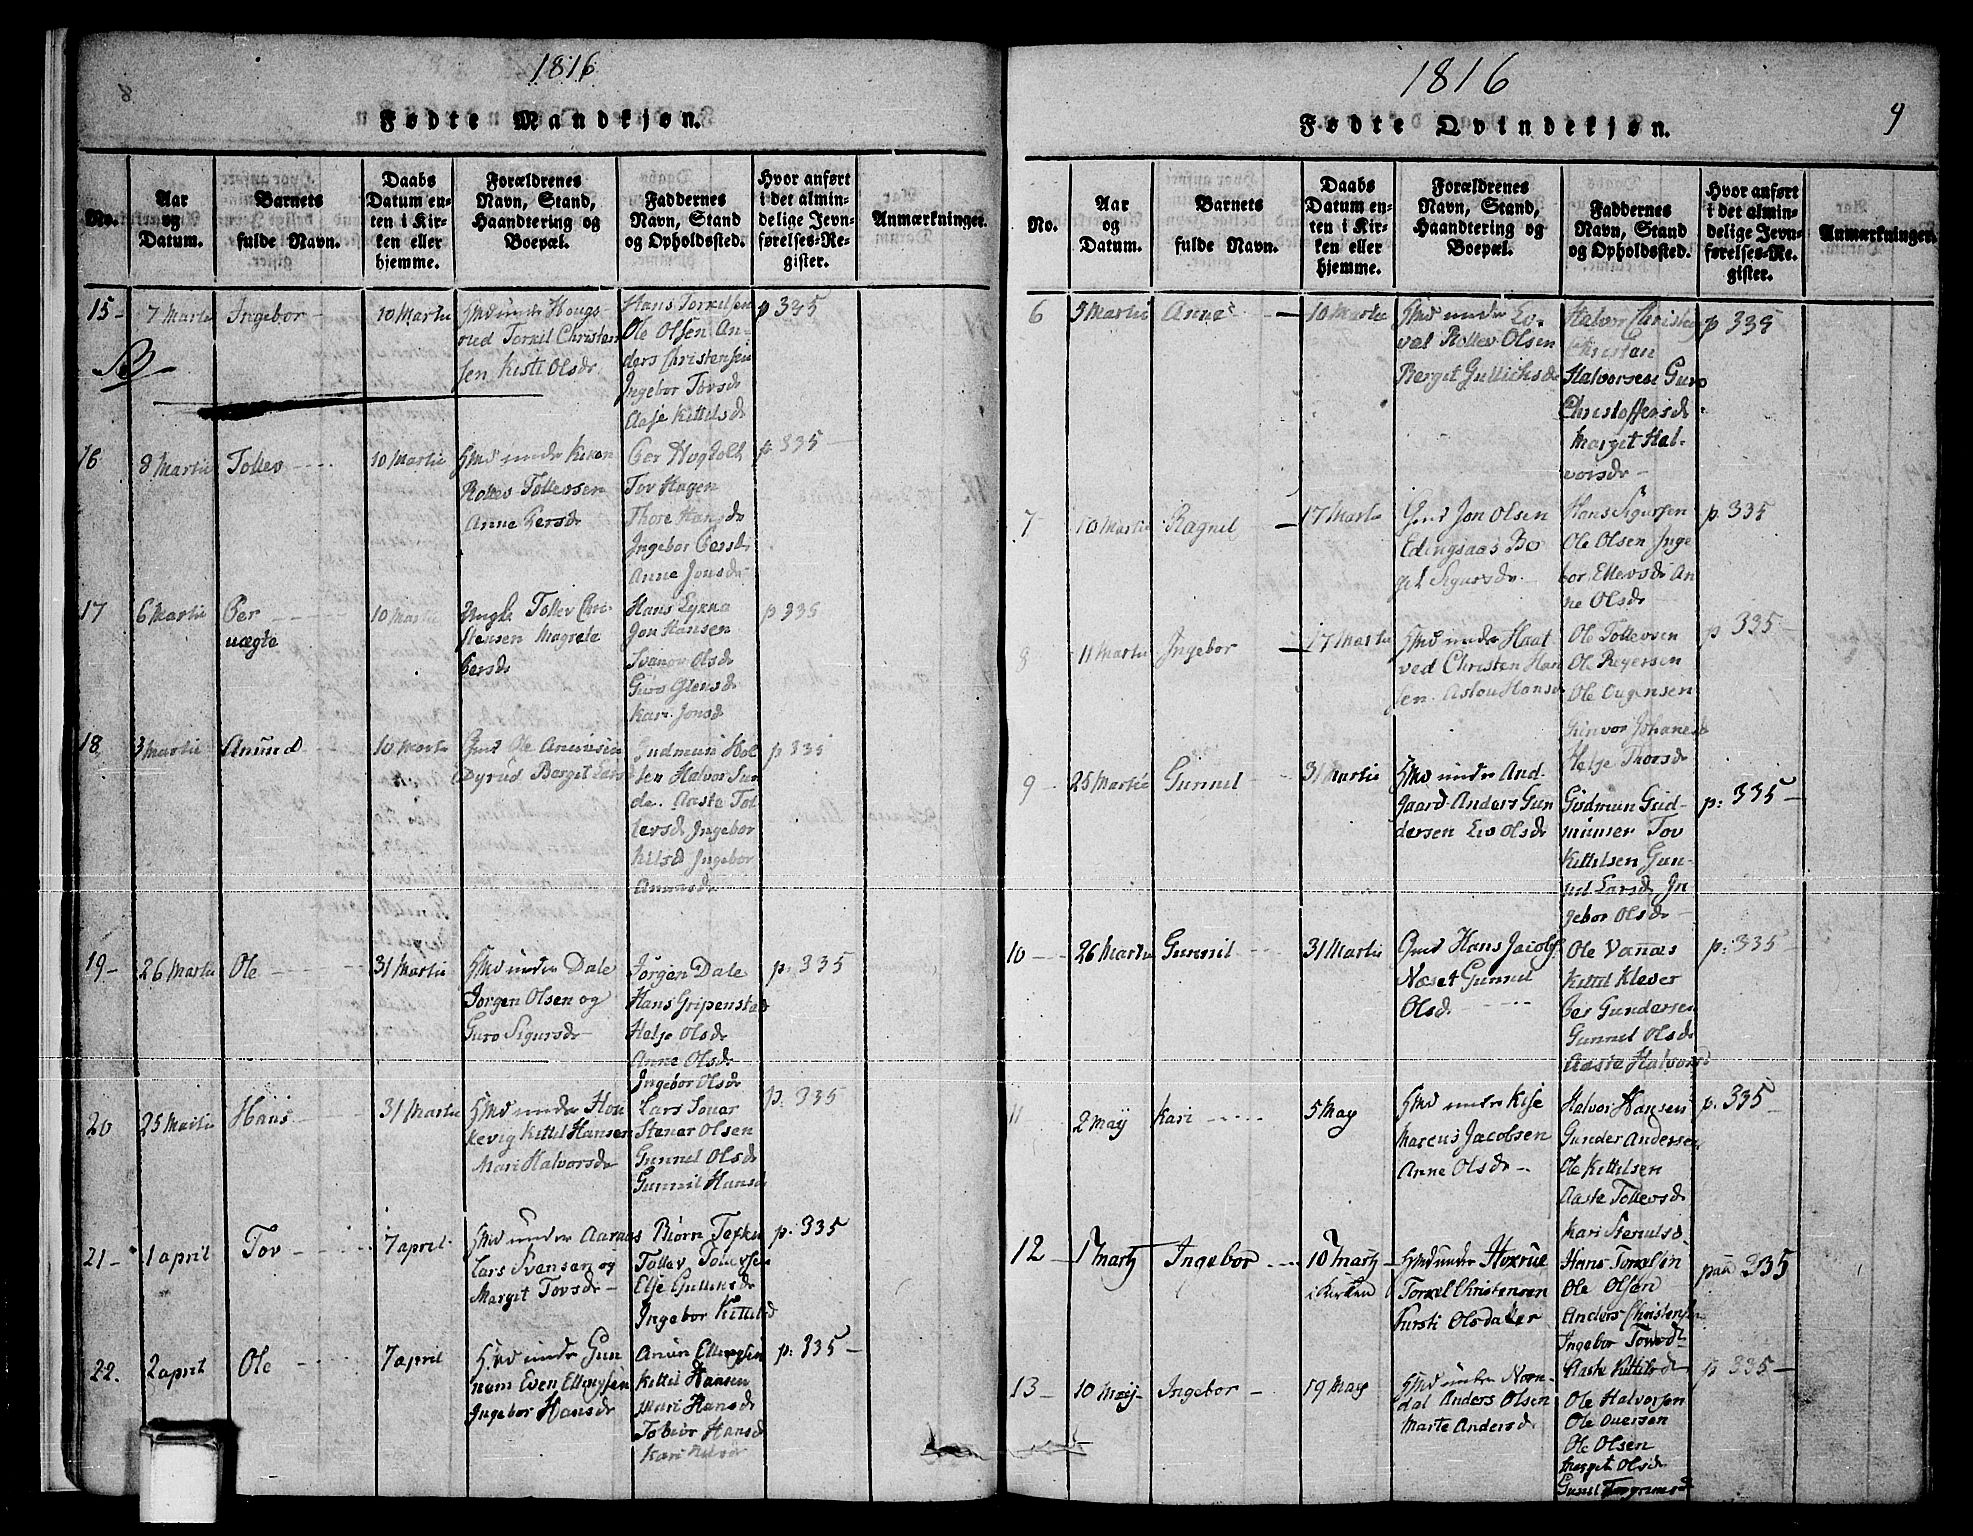 1816
Fødte Mandkjøn.
No.
Aar
og
Datum.
Barnets
fulde Navn.
Daabs
Datum en-
ten i Kir-
ken eller
hjemme.
Forældrenes
Navn, Stand,
Haandtering og
Boepæl.
Faddernes
Navn, Stand
og Opholdssted.
Hvor anført
i det almin-
delige Jevn-
førelses-Re-
gister.
Anmærkninger.
15 -
7 Martii
Ingebor
10 Martii
Hmd under Hougs-
rud Torkil Christen
sen Kisti Olsdr
Hans Torkilsen
Ole Olsen An-
ders Christensen
Ingebor Tovsdr
Aasje Kittilsdr
p 335
16
8 Martii
Tollev
10 Martii
Hmd under
Rollev Tollevsen
Anne Persdr
Per
Tov Hagen
Thore Hansdr
Ingebor Persdr
Anne Jonsdr
p 335
17
6 Martii
Per
uægte
10 Martii
Ungk: Tollev Chri-
stensen Magrete
Persdr
Hans
Jon Hansen
Svanou Olsdr
Guro
Kari Jonsd
p 335
18
3 Martii
Anund
10 Martii
Gmd Ole
Berget Larsd
Gudmun Hol-
sen Halvor
Aaste Tol-
levsdr Ingebor
Ingebor
p 335
19 -
26 Martii
Ole
31 Martii
Hmd under Dale
Jorgen Olsen og
Guro Sigursdr
Jørgen Dale
Hans Gripenstad
Helje Olsdr
Anne Olsdr
Ingebor Olsdr
p. 335
20
25 Martii
Hans
31 Martii
Hmd under Hou
kevig Kittil Hansen
Mari Halvorsdr
Lars
Stener Olsen
Gunnil Olsdr
Gunnil Hansd
p. 335
21 -
1 april
Tov
7 april
Hmd under Aarnæs
Lars Svensen og
Margit Tovsdr
Biørn
Tollev Tollevsen
Elsje Gulliksdr
Ingebor Kittilsd
p. 335
22.
2 april
Ole
7 april
Hmd under Gun
nem Even Ellingsen
Ingebor Hansdr
Anun Ellingsen
Kittil Hansen
Mari Hansdr
Tobiør Hansd
Kari
p: 335 -
1816
9
Fødte Qvindekjøn.
No.
Aar
og
Datum.
Barnets
fulde Navn.
Daabs
Datum en-
ten i Kir-
ken eller
hjemme.
Forældrenes
Navn, Stand,
Haandtering og
Boepæl.
Faddernes
Navn, Stand
og Opholdssted.
Hvor anført
i det almin-
delige Jevn-
førelses-Re-
gister.
Anmærkninger.
6
5 Martii
Anne
10 Martii
Hmd under
Rollev Olsen
Berget Gullichsdr
Halvor Christen
Christen
Halvorsen Guro
Christoffersdr
Marget Hal-
vorsdr
p 335
7
10 Martii
Ragnil
17 Martii
Gmd Jon Olsen
Edingsaas Bo
gel Sigursdr
Hans Sigursen
Ole Olsen Inge
bor Ellevsdr An
ne Olsdr
p. 335
8
11 Martii
Ingebor
17 Martii
Hmd under Haat
ved Christen Han
sen Aslou Hansd
Ole Tollevsen
Ole Regersen
Ole
Ginvor Johanesd
Helje Thorsdr
p. 335
9
25 Martii
Gunnil
31 Martii
Hmd under And-
gaard Anders Gun
dersen Liv Olsdr
Gudmun Gud-
munser Tov
Kittilsen Gun-
nil Larsdr In
gebor Olsdr
p: 335 -
10
26 Martii
Gunnil
31 Martii
Gmd Hans Jacobs
Næset Gunnil
Olsdr
Ole Vannæs
Kittil Klever
Per Gundersen
Gunnil Olsdr
Aaste Halvorsd
p: 335 -
11
2 Maij
Kari
5 May
Hmd under Kise
Marcus Jacobsen
Anne Olsdr -
Halvor Hansen
Gunder Andersen
Ole Kittilsen
Aaste Tollevsdr
Kari
p. 335 -
12
17 Marty
Ingebor
10 Marty
i Kirken
Hmd under
Torkel Christensen
Kirsti Olsdatter
Hans Torkelsen
Ole Olsen
Anders Christensen
Ingebor Tovsdr
Aaste Kittilsdr
335
13 -
10 Maij
Ingebor -
19 May
Hmd under Norn-
dal Anders Olsen
Marte Andersdr
Ole Halvorsen
Ole
Ole Olsen
Marget Olsdr
Gunil
p 335 -